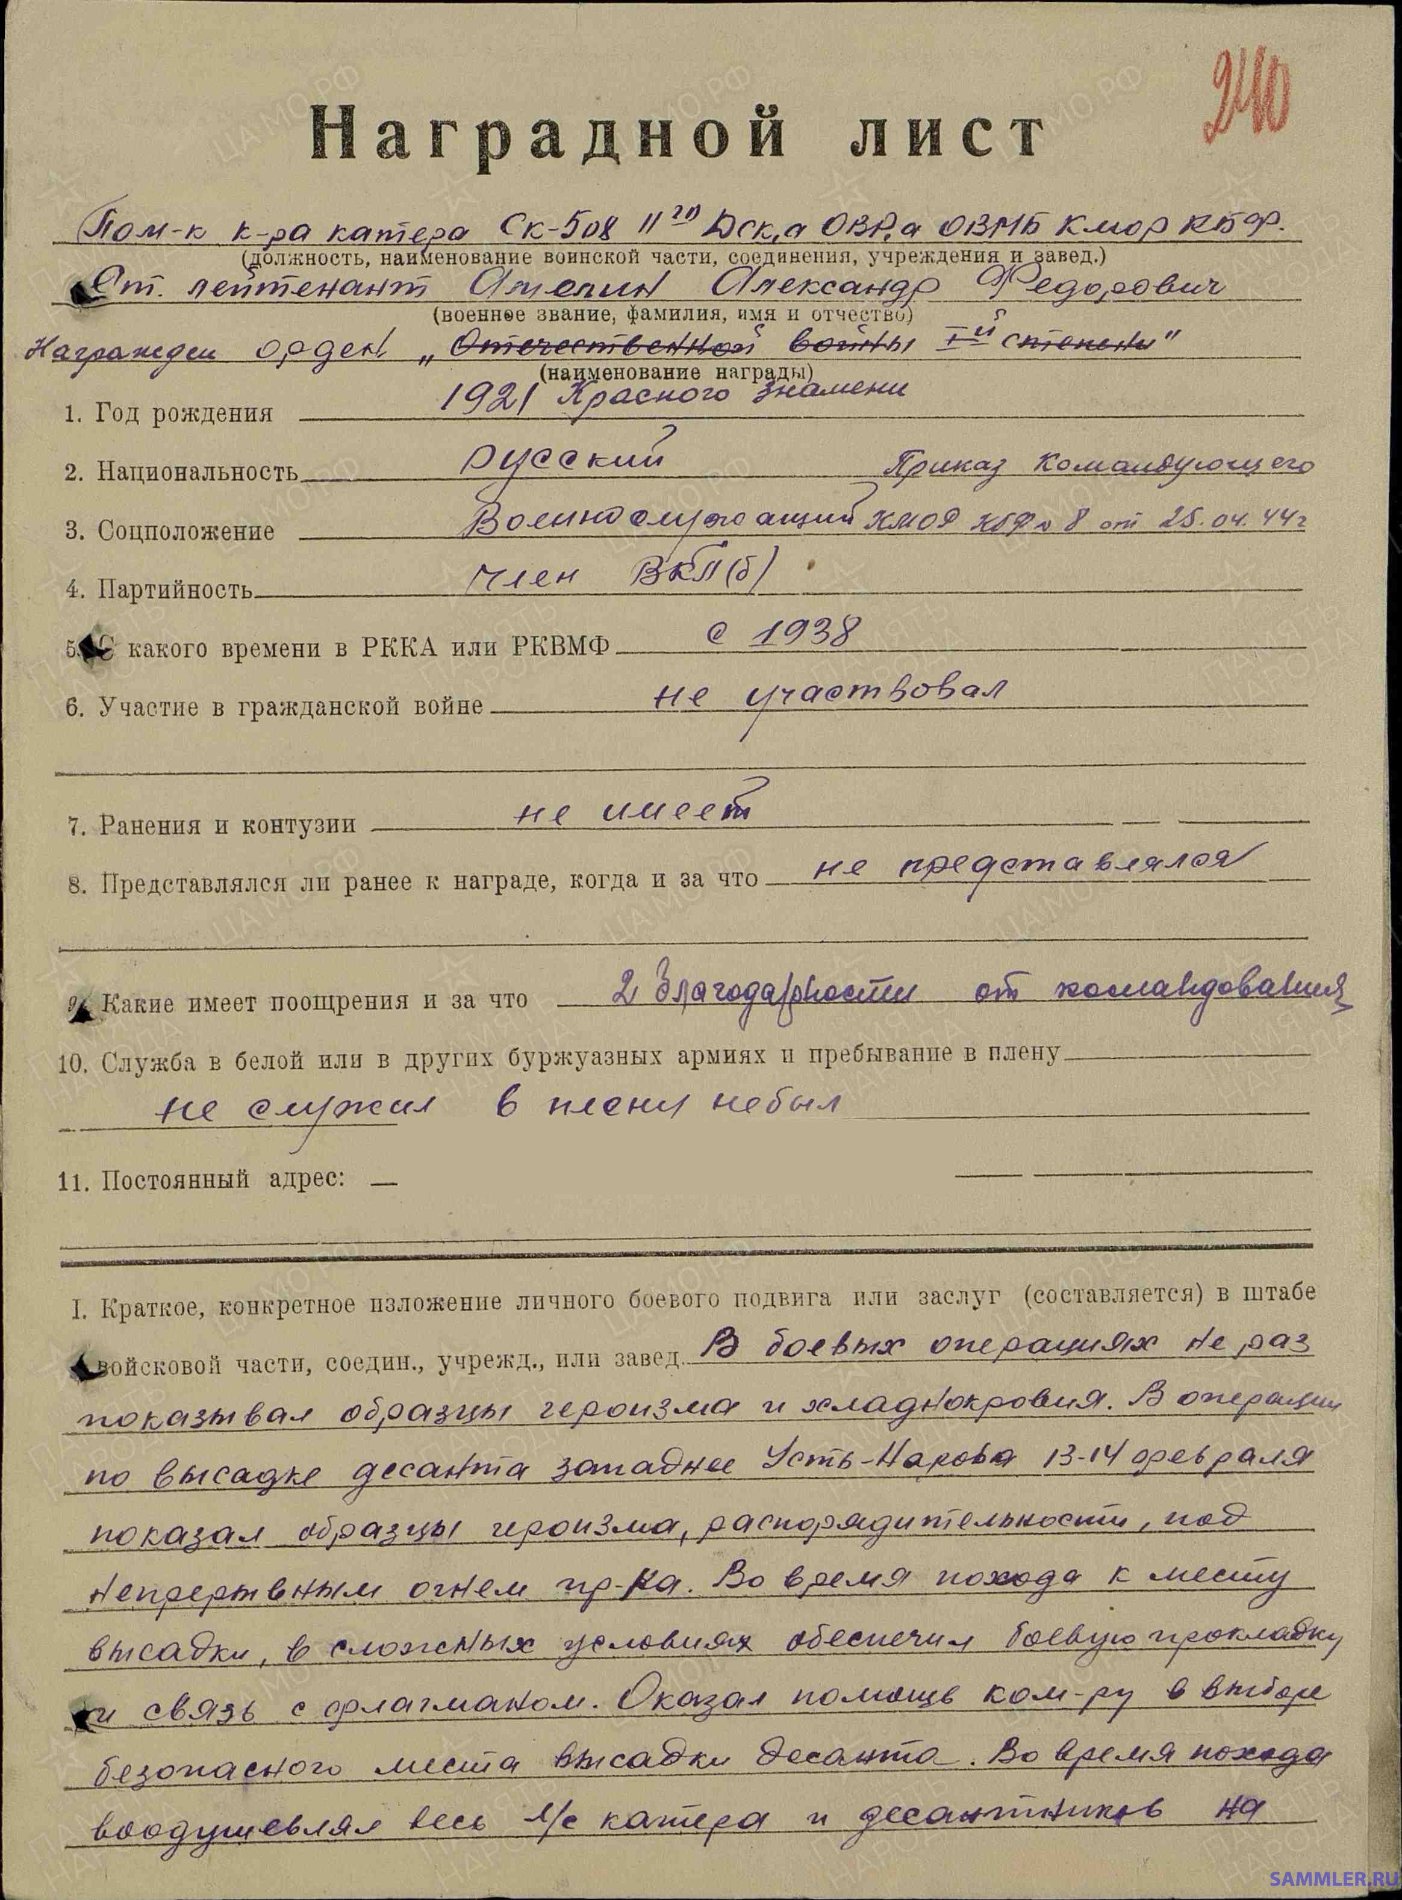 240
Наградной лист
Пом-к к-ра катера СК-508 IIго ДСК,а ОВР,а ОВМБ КМОР КБФ.
(должность, наименование воинской части, соединения, учреждения и завед.)
Ст. лейтенант Амелин Александр Федорович
(военное звание, фамилия, имя и отчество)
Награжден орден „Отечественной войны Iй степени"
(наименование награды)
Красного знамени
1. Год рождения 1921
2. Национальность русский
Приказ Командующего
3. Соцположение Военнослужащий
КМОР КБФ № 8 от 25.04.44г
4. Партийность член ВКП(б)
5. С какого времени в РККА или РКВМФ с 1938
6. Участие в гражданской войне не участвовал
7. Ранения и контузии не имеет
8. Представлялся ли ранее к награде, когда и за что не представлялся
9. Какие имеет поощрения и за что 2 Благодарности от командования
10. Служба в белой или в других буржуазных армиях и пребывание в плену
не служил в плену небыл
11. Постоянный адрес:
I. Краткое, конкретное изложение личного боевого подвига или заслуг (составляется) в штабе
войсковой части, соедин., учрежд., или завед. В боевых операциях не раз
показывал образцы героизма и хладнокровия. В операции
по высадке десанта западнее Усть-Нарова 13-14 февраля
показал образцы героизма, распорядительности, под
непрерывным огнем пр-ка. Во время похода к месту
высадки, в сложных условиях обеспечил боевую прокладку
и связь с флагманом. Оказал помощь ком-ру в выборе
безопасного места высадки десанта. Во время похода
воодушевлял весь л/с катера и десантников на
SAMMLER.RU